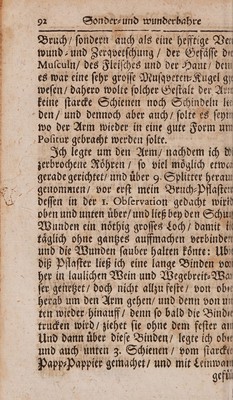 92 Sonder- und wunderbahre
Bruch/ sondern auch als eine hefftige Ver
wund- und Zerquetschung/ der Gefässe de
Musculn/ des Fleisches und der Haut/ denn
es war eine sehr grosse Musqveten-Kugel g
wesen/ dahero wolte solcher Gestalt der Arm
keine starcke Schienen noch Schindeln lei
den/ und dennoch aber auch/ solte es seyn
wo der Arm wieder in eine gute Form un
Positur gebracht werden solte.
Ich legte um den Arm/ nachdem ich di
zerbrochene Röhren/ so viel möglich etwas
gerade gerichtet/ und über 9. Splitter heraus
genommen/ vor erst mein Bruch-Pflaster
dessen in der 1. Observation gedacht wird
oben und unten über/ und ließ bey den Schuß
Wunden ein nöthig grosses Loch/ damit ic
täglich ohne gantzes auffmachen verbinden
und die Wunden sauber halten könte: Ube
diß Pflaster ließ ich eine lange Binden vor
her in laulichen Wein und Wegebreit-Was
ser genetzet/ doch nicht allzu feste/ von obe
herab um den Arm gehen/ und denn von un
ten wieder hinauff/ denn so bald die Binde
trucken wird/ ziehet sie ohne dem fester an
Und dann über diese Binden/ legte ich oben
und auch unten 3. Schienen/ vom starcken
Papp-Pappier gemachet/ und mit Leinwan
gefüt